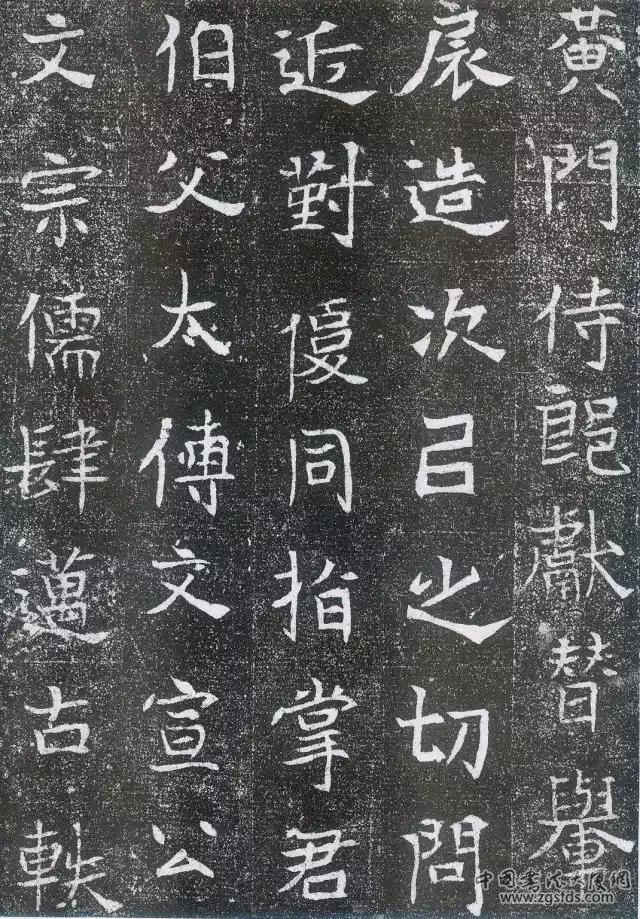 黃門侍郎獻替轝
扆造次㠯之切問
近對優同指掌君
伯父太傅文宣公
文宗儒肆邁古軼
www.zgsfds.com